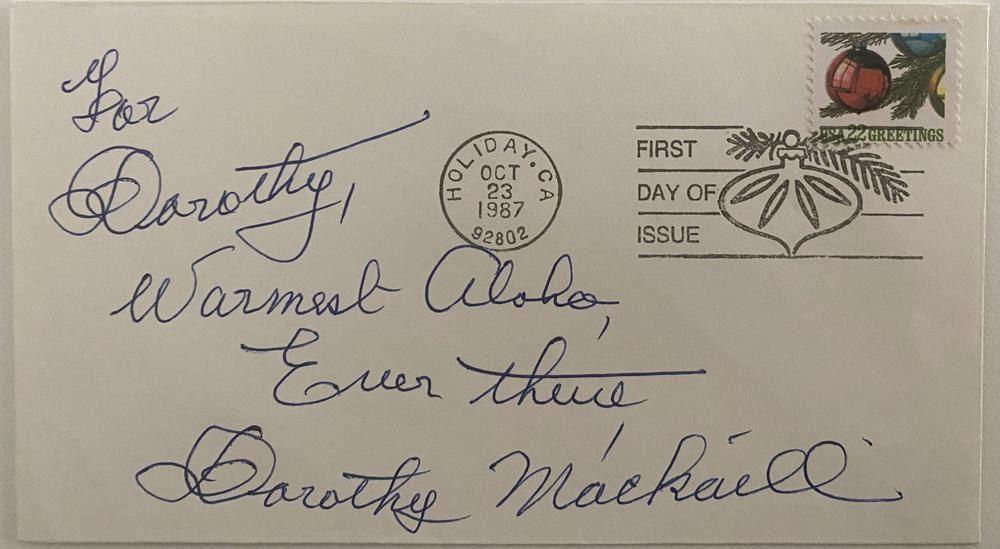 For
Dorothy,
Warmest Aloha,
Ever thine,
Dorothy Mackaill
HOLIDAY, CA
OCT
23
1987
92802
FIRST
DAY OF
ISSUE
USA 22 GREETINGS